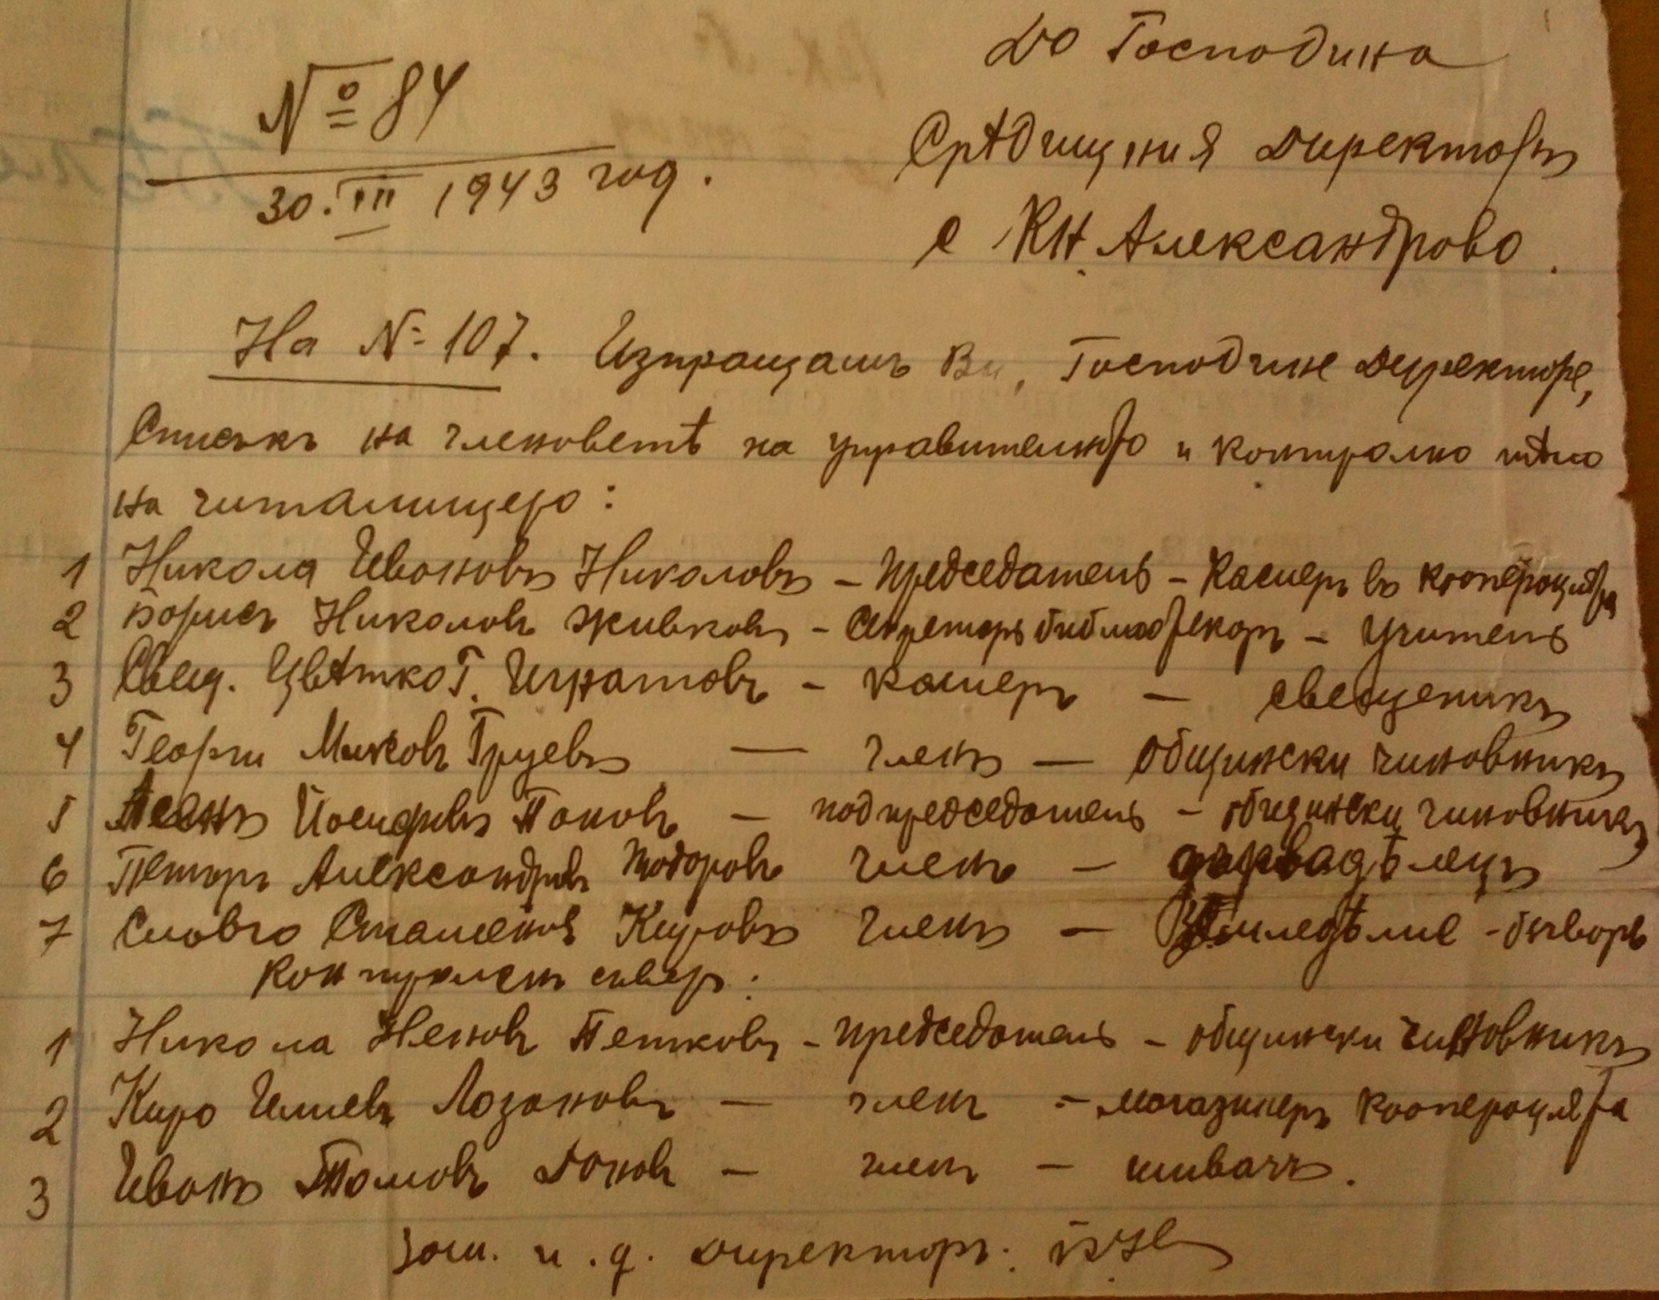 До Господина
№ 84
Срѣдищния Директоръ
30.III 1943 год.
с КН. Александрово.
На № 107. Изпращамъ Ви, Господине Директоре,
Списъкъ на членоветѣ на управителното и контролно тѣло
на читалището:
1 Никола Ивановъ Николовъ – председатель – Касиеръ въ кооперацията
2 Борисъ Николовъ Живковъ – Секретарь библиотекарь – Учитель
3 Свещ. Цвѣтко Г. Игнатовъ – касиеръ – свещеникъ
4 Георги Миковъ Груевъ — членъ — общински чиновникъ
5 Асенъ Йосифовъ Пановъ – подпредседатель – общински чиновникъ
6 Петъръ Александровъ Тодоровъ членъ – дърводѣлецъ
7 Славчо Стаменовъ Кировъ членъ – Земледѣлие - бъчварь
контроленъ съвет:
1 Никола Неновъ Петковъ – председатель – общински чиновникъ
2 Киро Илиевъ Лозановъ – членъ – магазинеръ кооперацията
3 Иванъ Томовъ Доновъ – членъ – шивачъ.
Зам. и. д. директоръ: